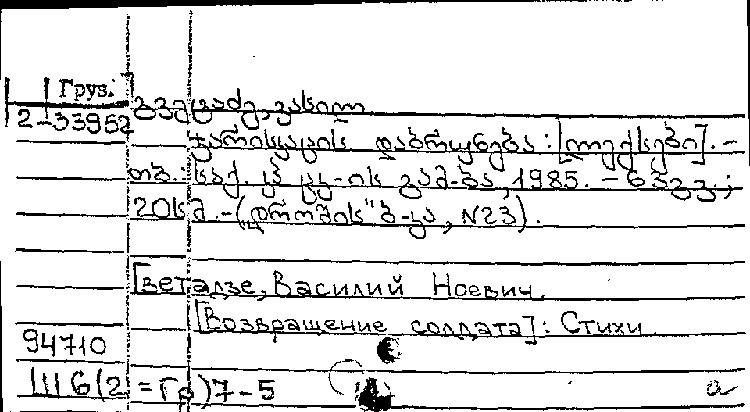 Груз.
2-33952
გვეტაძე, ვასილ
ჯარისკაცის დაბრუნება: [ლექსები]. -
თბ.: საქ. კპ ცკ-ის გამ-ბა, 1985. - 63 გვ.;
20სმ. - („დროშის" ბ-კა, N23).
Гветадзе, Василий Ноевич.
[Возвращение солдата]: Стихи
94710
Ш6(2=Гр)7-5
a